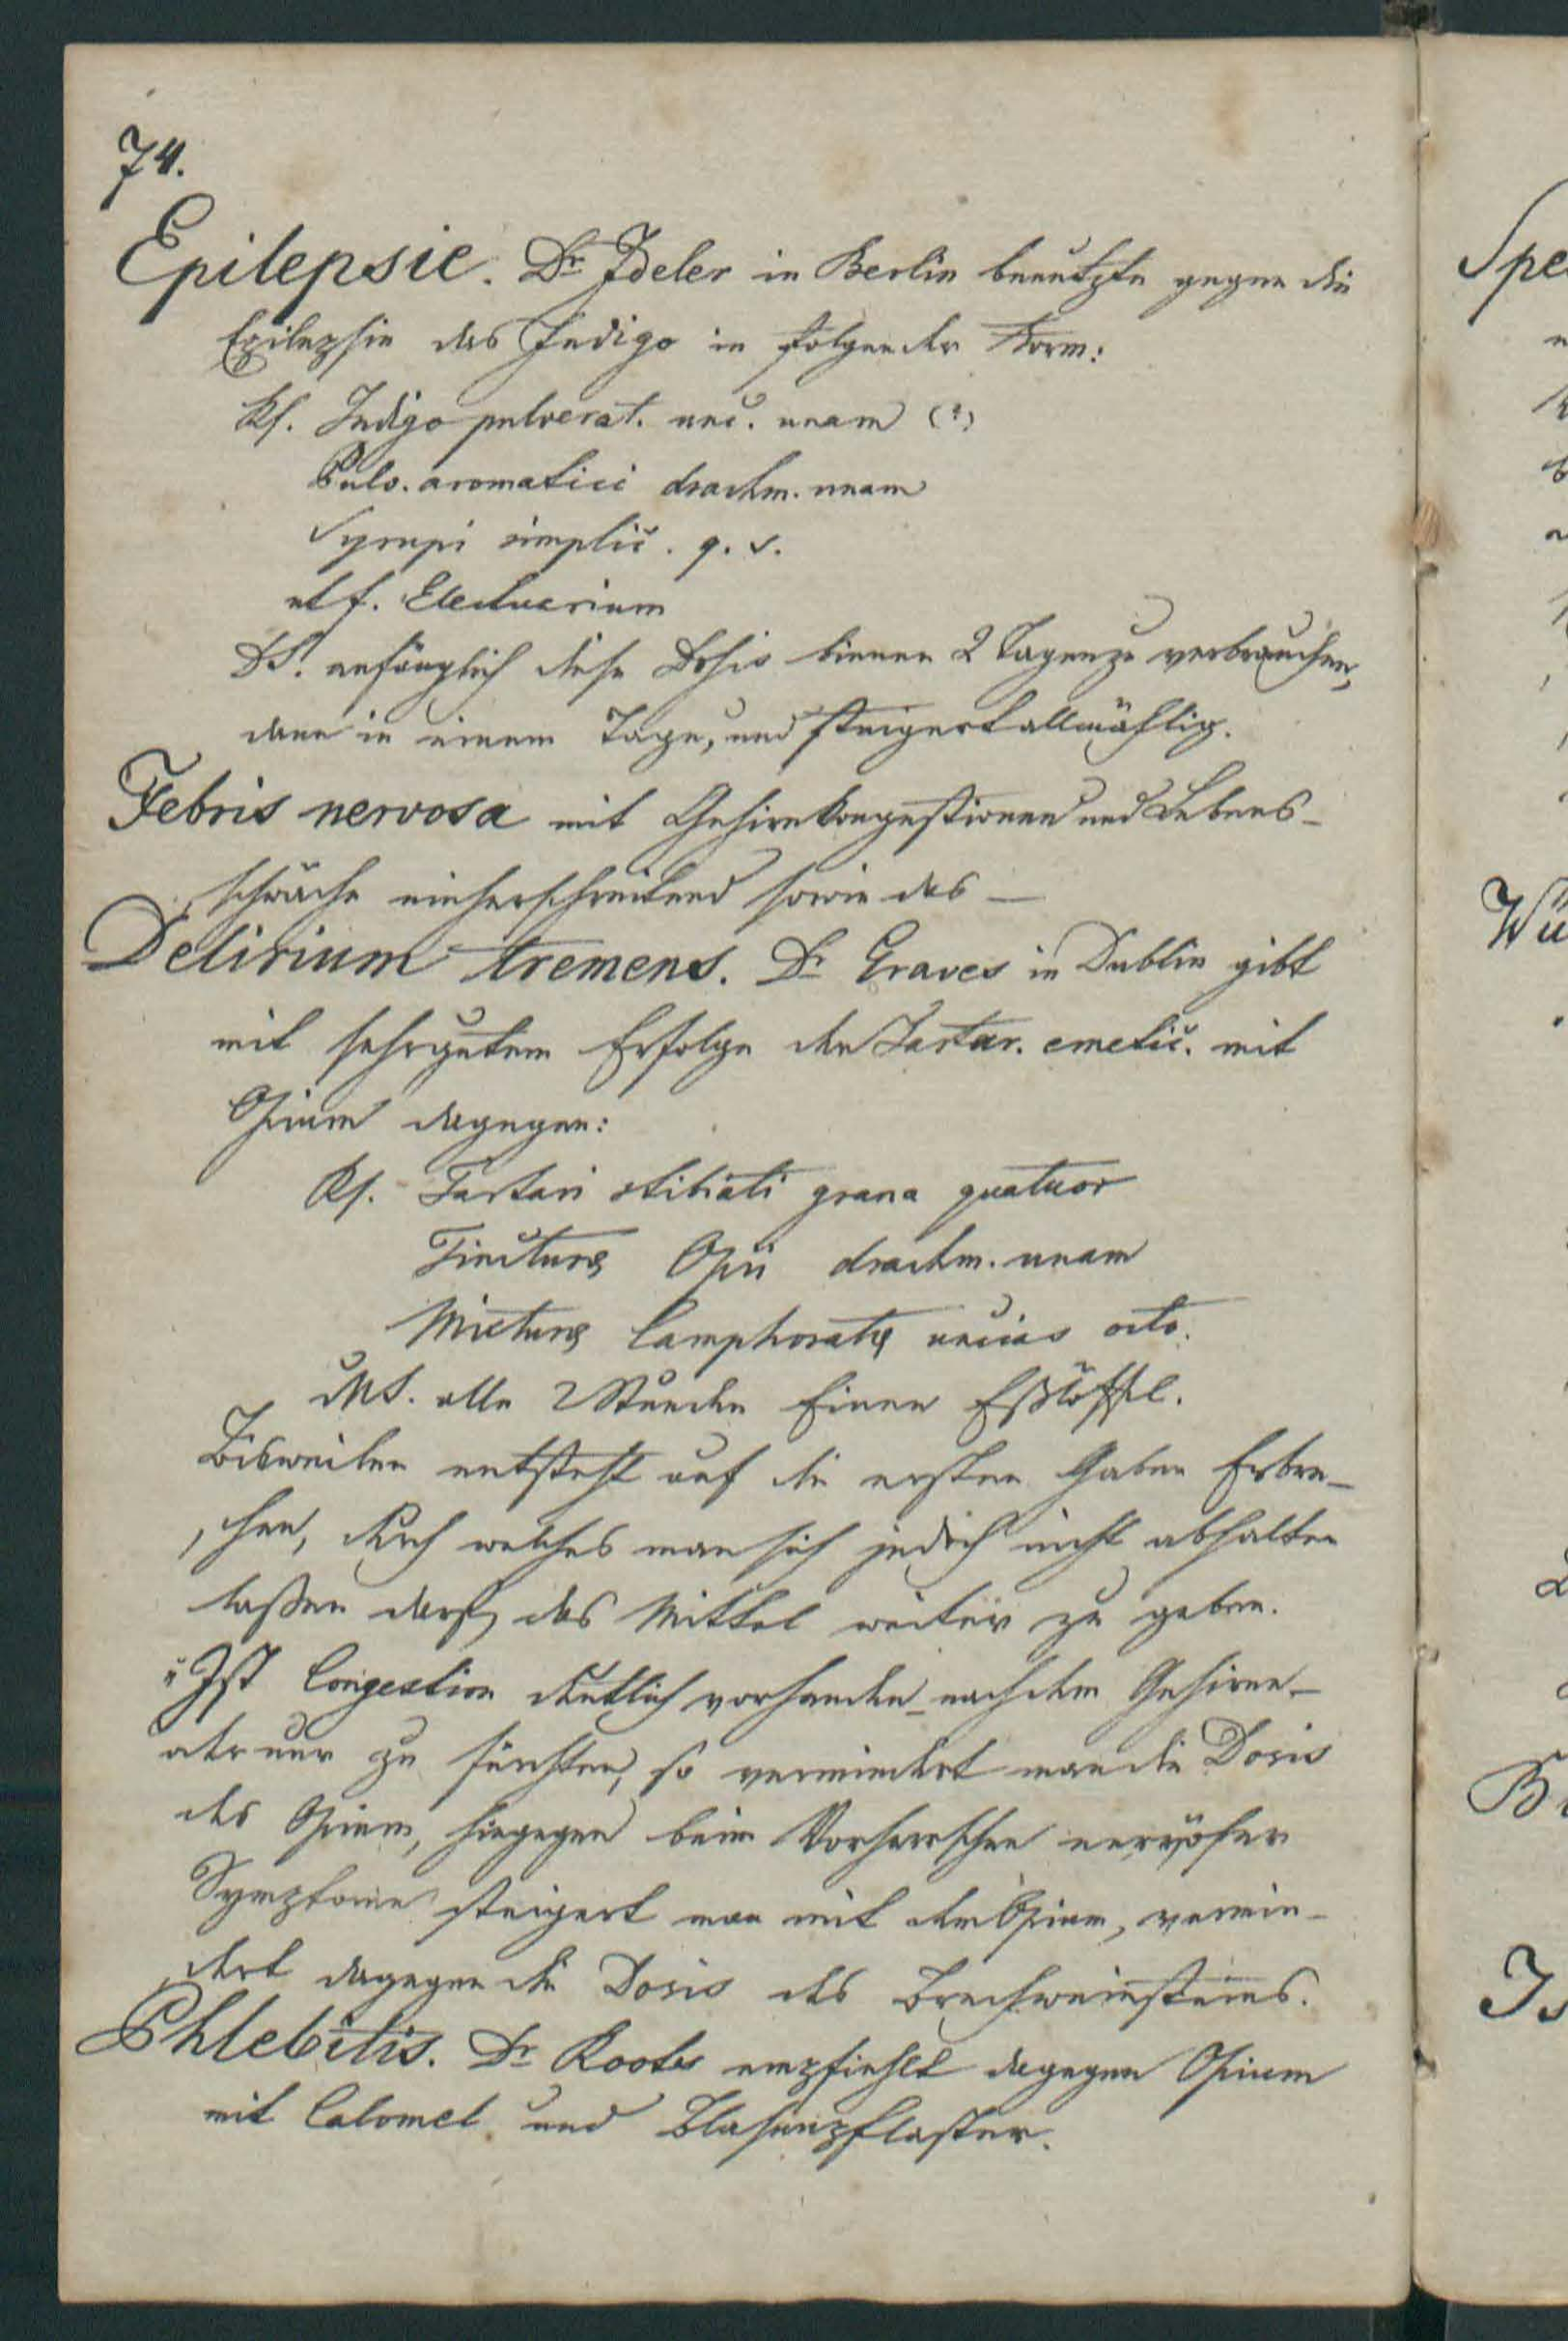 74.
Epilepsie. Dr Ideler in Berlin benützte gegen die
Epilepsie das Indigo in folgender Form:
Rf. Indigo pulverat. unc. unam (?)
Pulv. aromatici drachm. unam
Syrupi simplic. q. s.
ut f. Electuarium
DS. anfänglich diese Dosis binnen 2 Tagen zu verbrauchen,
dann in einem Tage, und steigert allmählig.
Febris nervosa mit Gehirnkongestionen und Lebens-
schwäche einherschreitend sowie das —
Delirium tremens. Dr Graves in Dublin gibt
mit sehr gutem Erfolge den Tartar. emetic. mit
Opium dagegen:
Rf. Tartari stibiati grana quatuor
Tincturæ Opii drachm. unam
Mixturæ Camphoratæ uncias octo.
MS. alle 2 Stunden Einen Eßlöffel.
Bisweilen entsteht auf die ersten Gaben Erbre-
chen, durch welches man sich jedoch nicht abhalten
laßen darf, das Mittel weiter zu geben.
"Ist Congestion deutlich vorhanden nach dem Gehirne-
oder nur zu fürchten, so vermindert man die Dosis
des Opium, hingegen beim Vorherrschen nervöser
Symptome steigert man mit dem Opium, vermin-
dert dagegen die Dosis des Brechweinsteins.
Phlebitis. Dr Roots empfiehlt dagegen Opium
mit Calomel und Blasenpflaster.
Spe
Wü